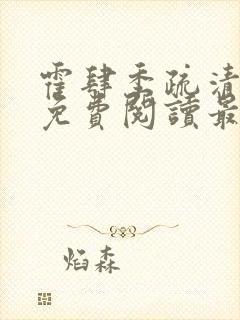 霍肆季疏清
免費閱讀最
焰森